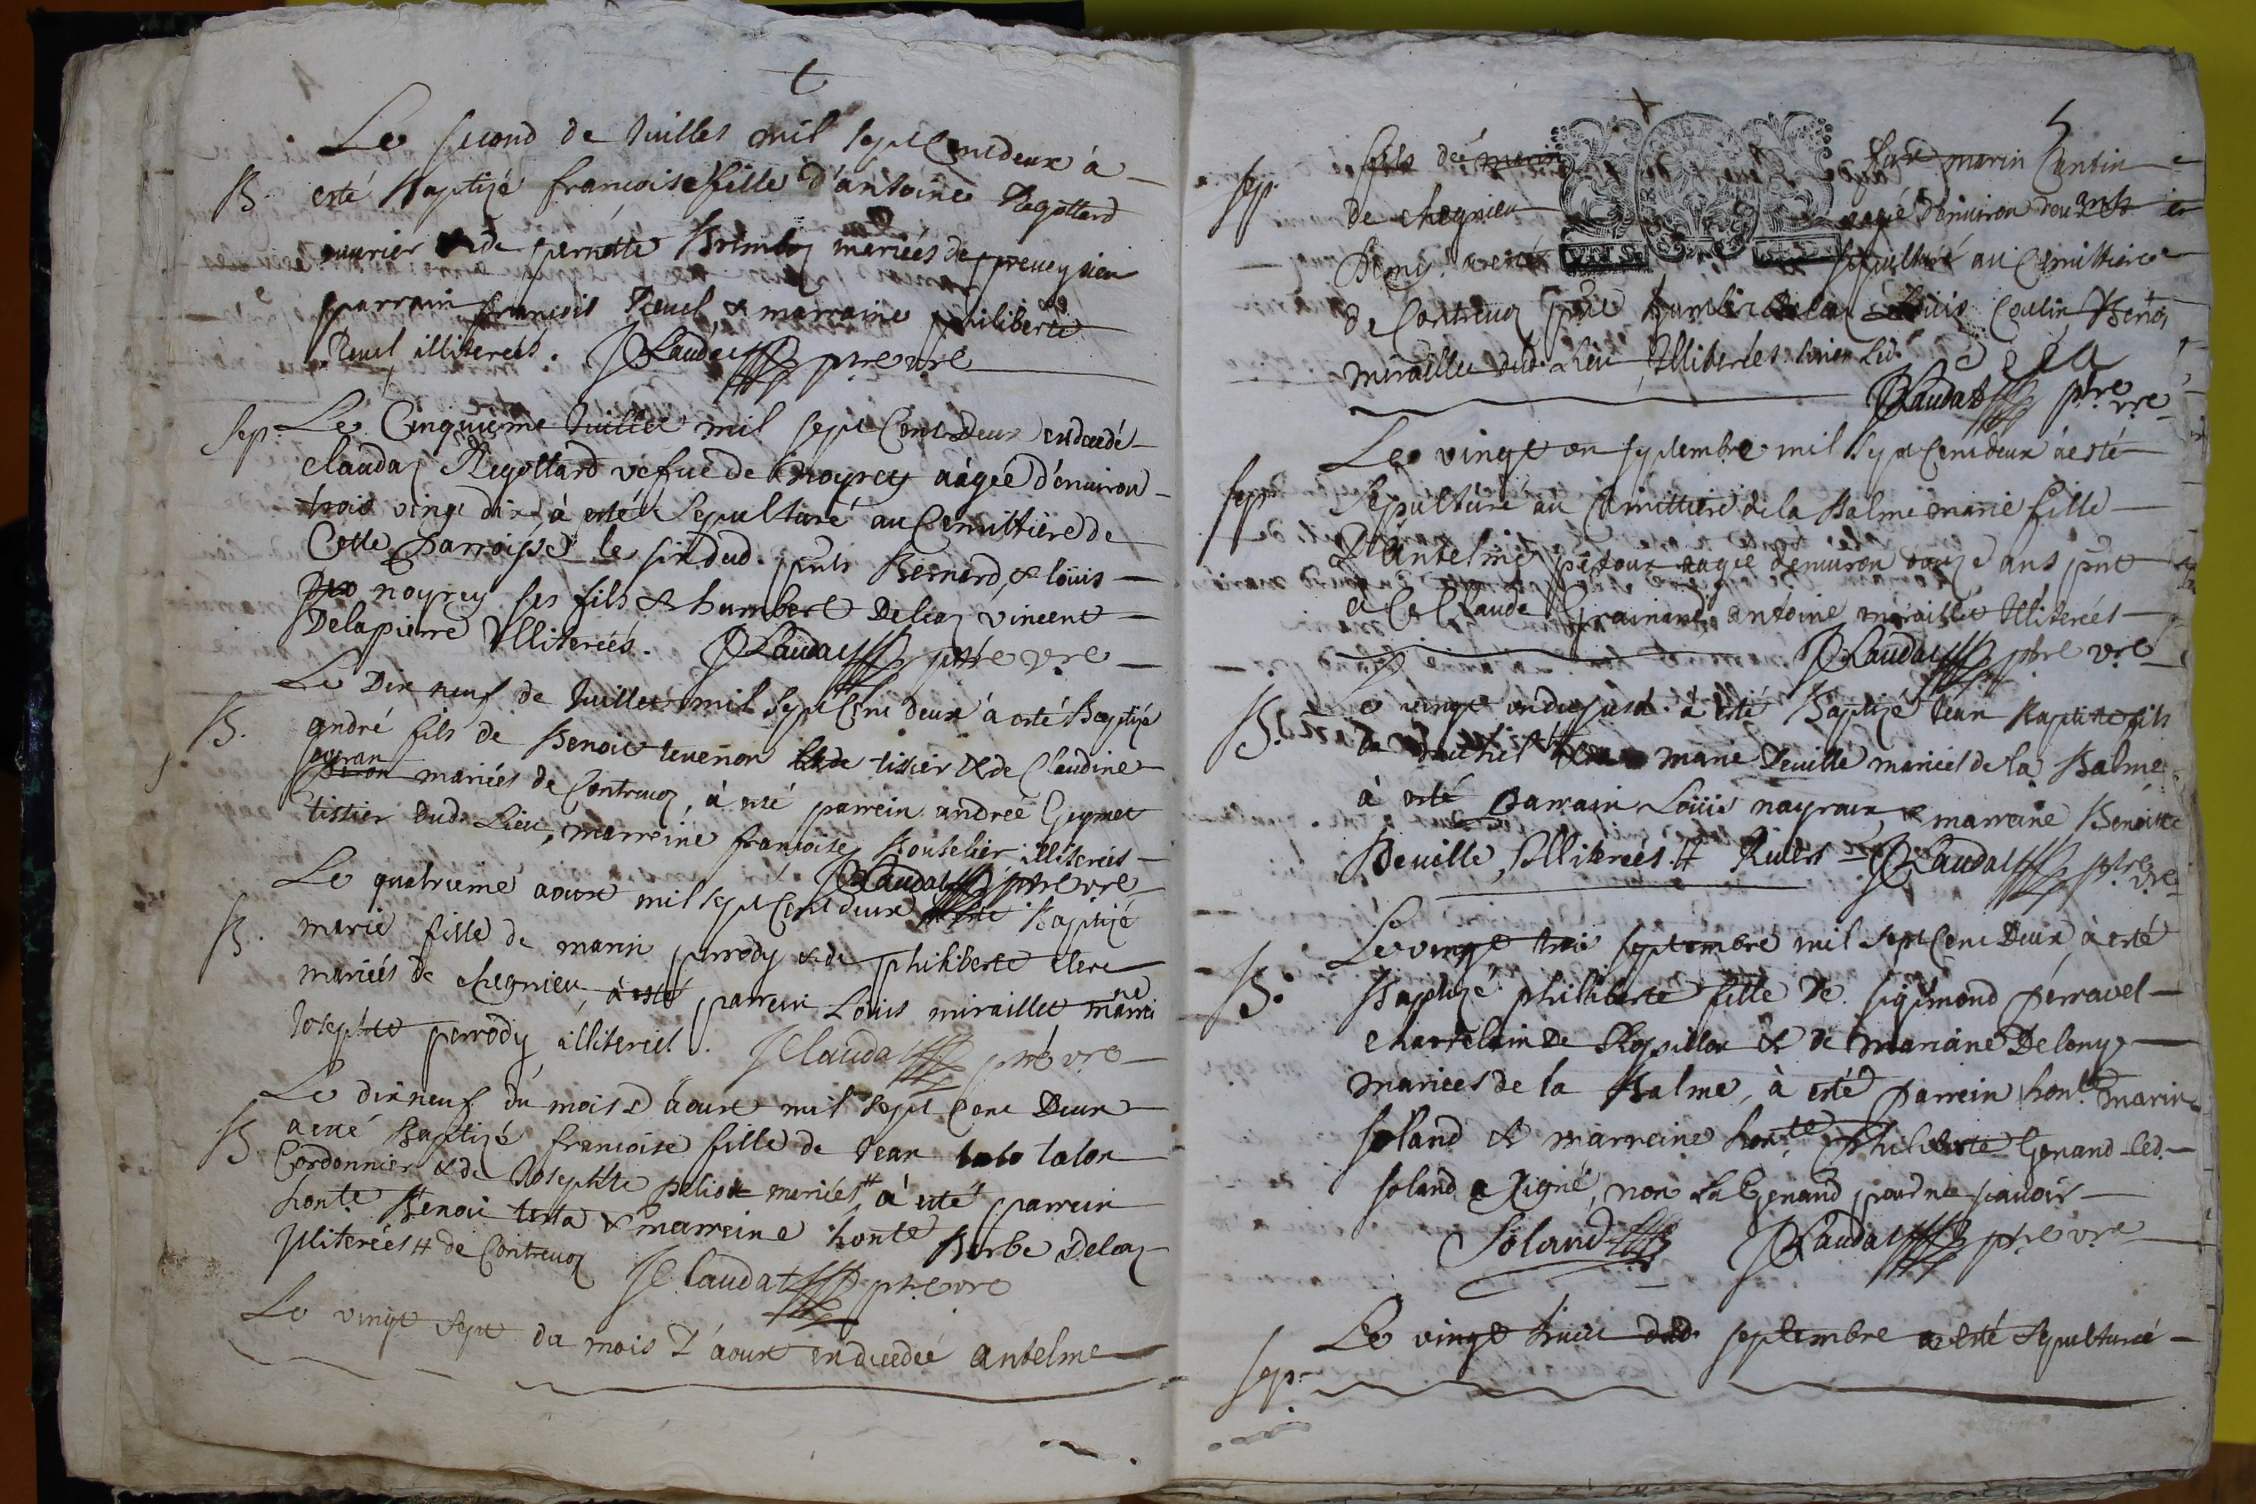 Le second de Juillet mil sept cent deux à
B. esté Baptizé francoise fille d'antoine Ragottard
ouurier & de pernette mariées de preueysieu
parrain francois Reuel & marraine philiberte
Reuel illiterées. JClaudat ptre vre
Sep. Le Cinquieme Juillet mil sept Cent Deux en decedé
clauda Regottard vefue de noyrey aàgée d'enuiron
trois vingt dix à esté Sepulturé au Cemittiere de
Cette Parroisse le six dud. pnts Bernard, & loüis
noyrey ses fils & humbert Delea vincent
Delapierre Illiterées. JClaudat ptre vre
Le Dix neuf de Juillet mil Sept Cent deux à esté Baptizé
B. andré fils de Benoit teuenon tissier & de Claudine
mariées de Contreuoz, à esté parrein andreé Geymet
tissier dud. Lieu, marreine francoise Boutelier illiterées
JClaudat ptre vre
Le quatrieme aoust mil sept Cent deux à esté Baptizé
B. marie fille de marin perrody & de philiberte clere
mariées de chegnieu, à esté parrein Louis miraillet marrei ne
Josephte perrody illiterées. JClaudat ptre vre
Le dixneuf du mois d'aoust mil sept Cent Deux
B. a esté Baptizé francoise fille de Jean talon
Cordonnier & de Josephte peliou mariées # à esté parrein
honte Benoit testa & marreine honte Barbe Deloz
Illiterées # de Contreuoz JClaudat ptre vre
Le vingt sept du mois d'aoust en decedée antelme
5
Sep. fils deé marin feux marin Contin
de chegnieu aagé d'enuiron deu ans et
Demy a esté sepulturé au Cemittiere
de Contreuoz pnt humbert Delea Louis Coulin Benoi
miraillet dud. Lieu Illiterées
JClaudat ptre vre
Le vingt en septembre mil sept Cent deux à esté
sepp. sepulturé au Cemittiere de la Balme marie fille
D'antelme pitour aagée denuiron douze ans pnt
Claude Grainane antoine miraillet Illiterées
JClaudat ptre vre
B. Le vingt à esté Baptizé Jean Baptiste fils
de marie Deuille mariées de la Balme
à esté Parrain Loüis nayroux & marreine Benoitte
Deuille, Illiterées JClaudat ptre vre
Le vingt trois septembre mil sept Cent Deux, à esté
B. Baptizé philiberte fille de sigismond perrauel
chattelain De Rossillon & de mariane Delony
mariees de la Balme, à esté parrein hon.te marin
soland & marreine hon.te Philiberte Genand led.
soland a signé, non La Genand pour ne scauoir
Soland JClaudat ptre vre
Sep. Le vingt huict dud. septembre a esté Sepulturée